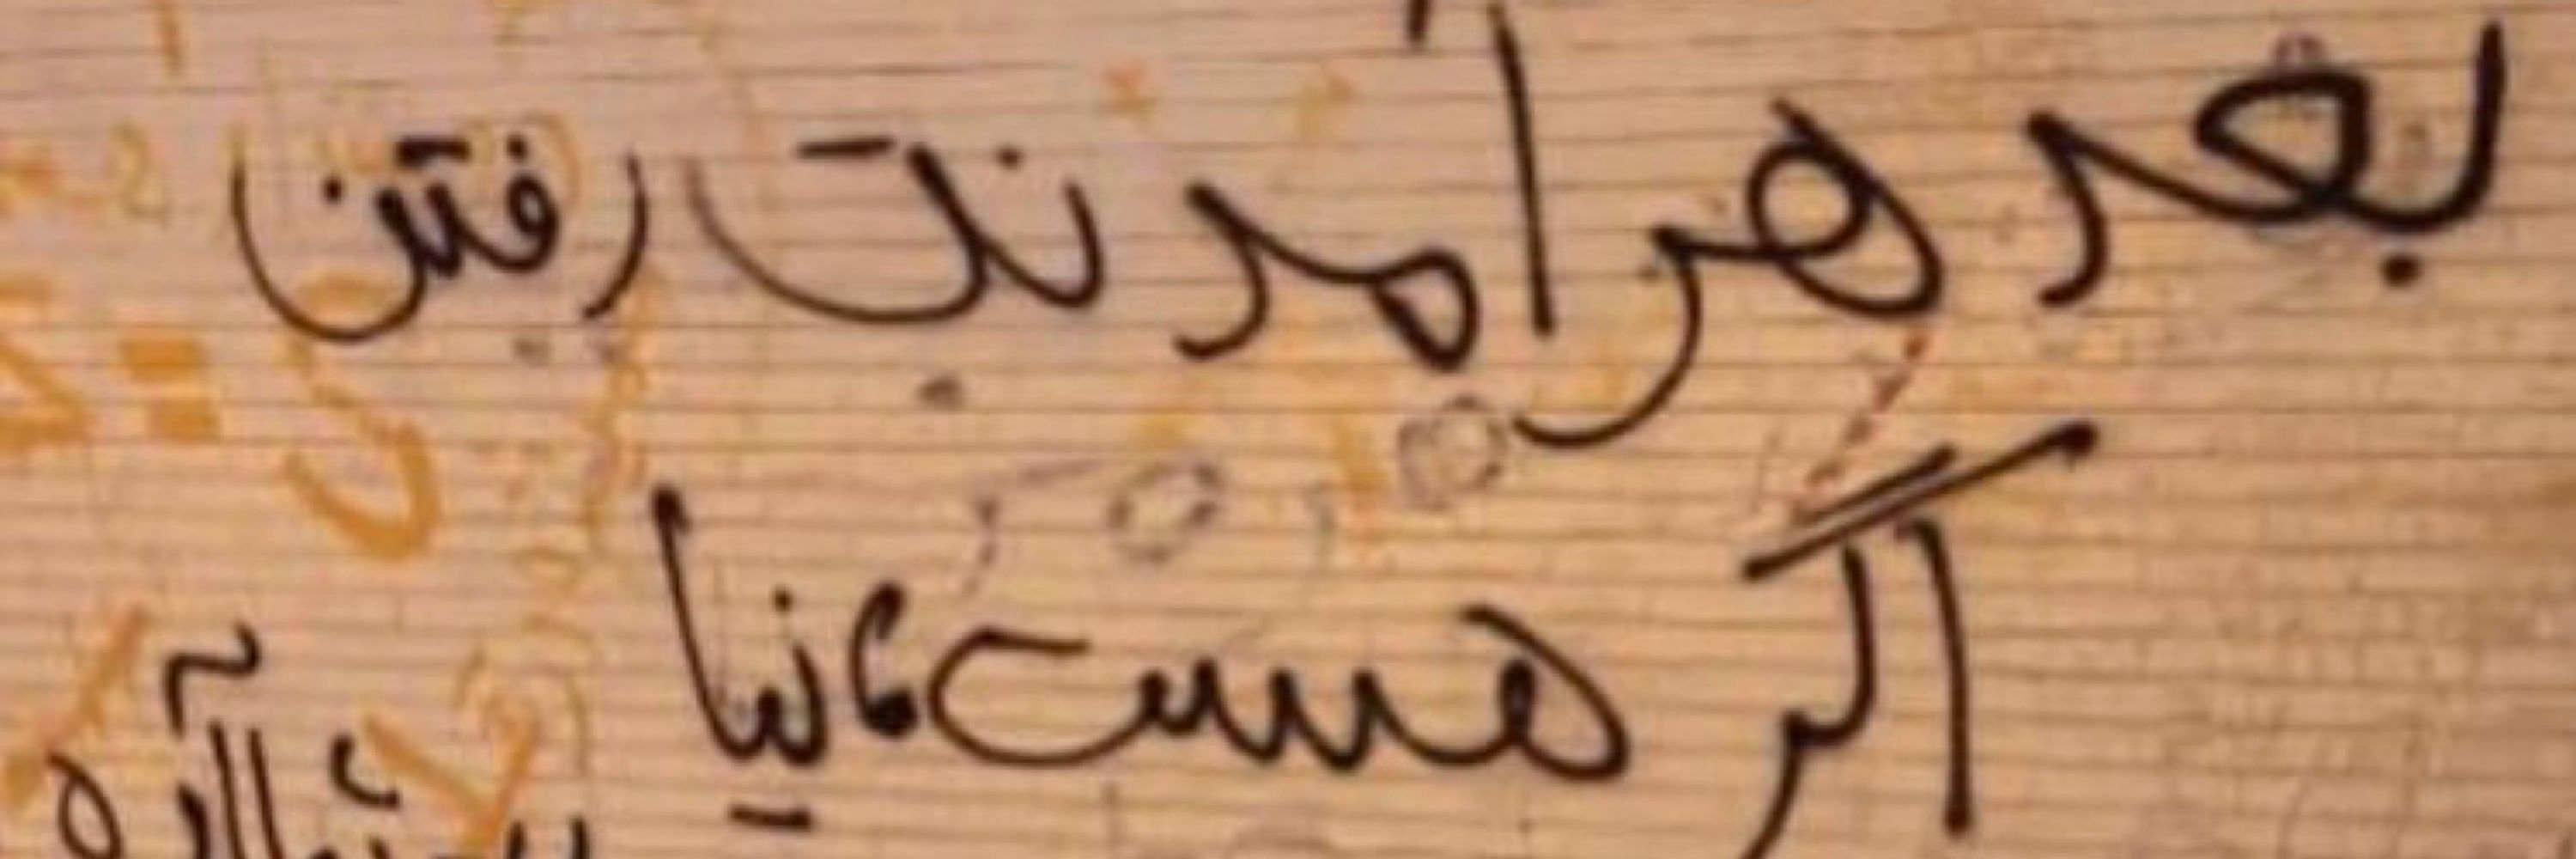 بعد هر آمدنت رفتن
اگر هست، نیا